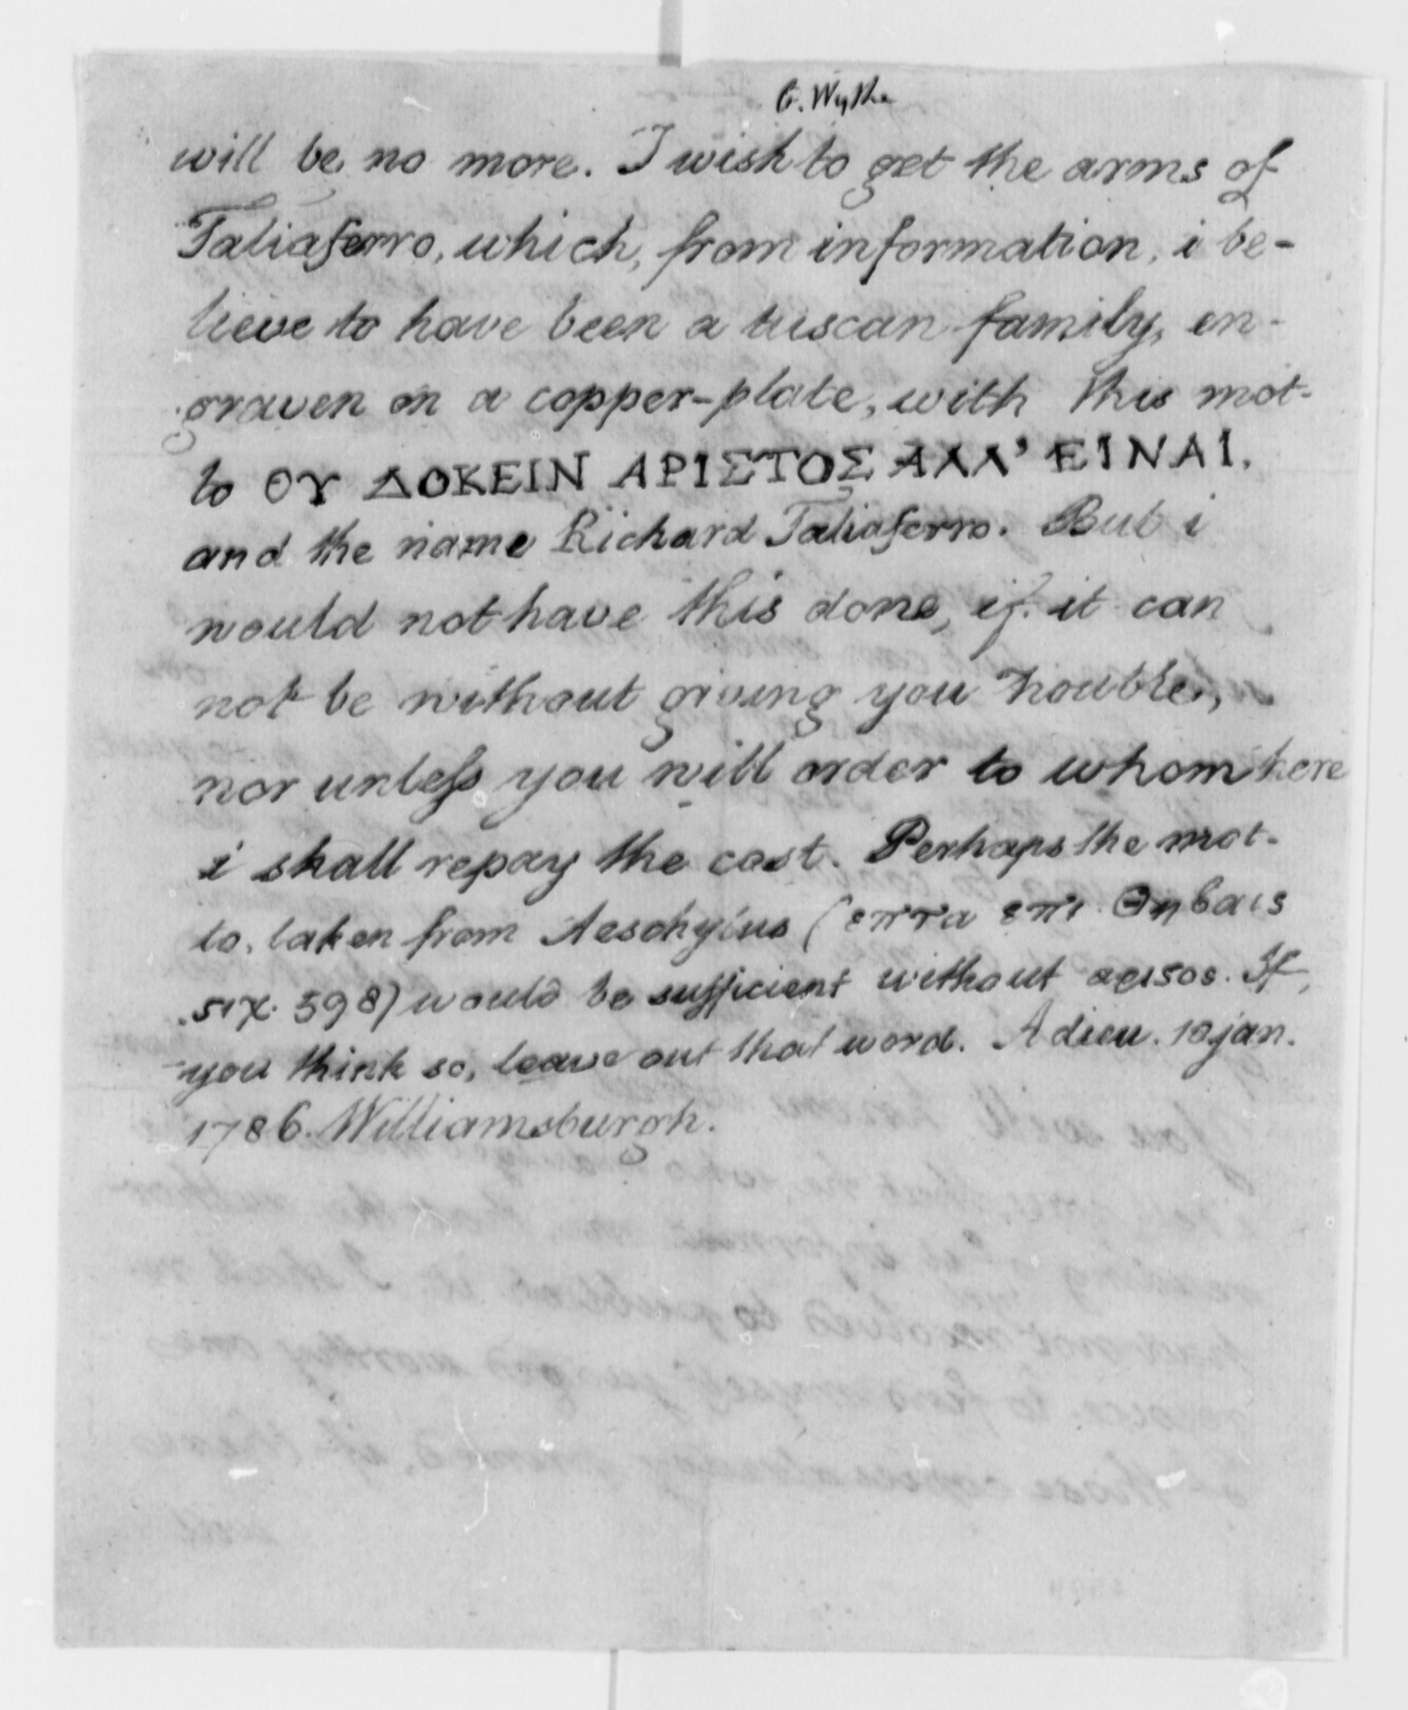 G. Wythe
will be no more. I wish to get the arms of
Taliaferro, which, from information, i be-
lieve to have been a tuscan family, en-
graven on a copper-plate, with this mot-
to ΟΥ ΔΟΚΕΙΝ ΑΡΙΣΤΟΣ ΑΛΛ' ΕΙΝΑΙ,
and the name Richard Taliaferro. But i
would not have this done, if it can
not be without giving you trouble,
nor unless you will order to whom here
i shall repay the cost. Perhaps the mot-
to, taken from Aeschylus (επτα επι Θηβαις
στχ. 598) would be sufficient without αριστος. If
you think so, leave out that word. Adieu. 10 jan.
1786. Williamsburgh.